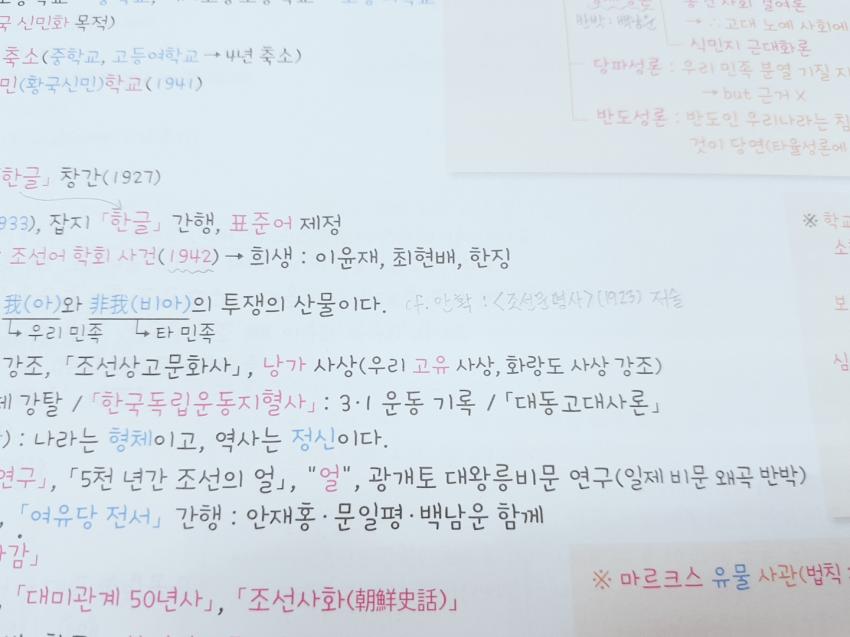 국 신민화 목적)
축소(중학교, 고등여학교 → 4년 축소)
민(황국신민)학교(1941)
한글」 창간(1927)
933), 잡지 「한글」 간행, 표준어 제정
조선어 학회 사건(1942) → 희생 : 이윤재, 최현배, 한징
我(아)와 非我(비아)의 투쟁의 산물이다. cf. 안확 : <조선문명사>(1923) 저술
↳ 우리 민족 ↳ 타 민족
강조, 「조선상고문화사」, 낭가 사상(우리 고유 사상, 화랑도 사상 강조)
제 강탈 / 「한국독립운동지혈사」 : 3·1 운동 기록 / 「대동고대사론」
) : 나라는 형체이고, 역사는 정신이다.
연구」, 「5천 년간 조선의 얼」, "얼", 광개토 대왕릉비문 연구(일제 비문 왜곡 반박)
, 「여유당 전서」 간행 : 안재홍·문일평·백남운 함께
감」
, 「대미관계 50년사」, 「조선사화(朝鮮史話)」
반박 : 백남운 → ∴고대 노예 사회에
식민지 근대화론
당파성론 : 우리 민족 분열 기질 지
→ but 근거 X
반도성론 : 반도인 우리나라는 침
것이 당연(타율성론에
※ 학교
소
보
심
※ 마르크스 유물 사관(법칙 :